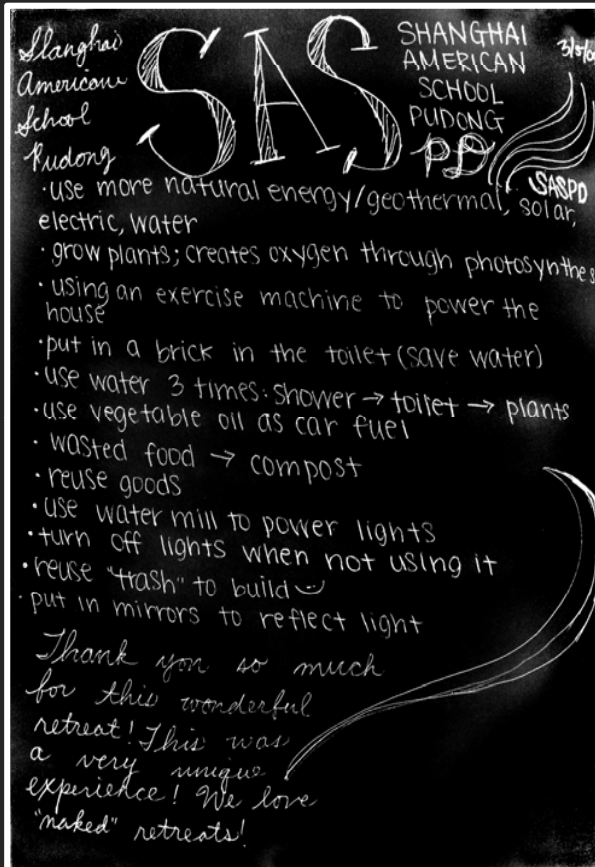 Shanghai
American
School
Pudong
SAS
SHANGHAI
AMERICAN
SCHOOL
PUDONG
PD
SASPD
·use more natural energy/geothermal, solar,
electric, water
·grow plants; creates oxygen through photosynthes
·using an exercise machine to power the
house
·put in a brick in the toilet (save water)
·use water 3 times: shower → toilet → plants
·use vegetable oil as car fuel
·wasted food → compost
·reuse goods
·use water mill to power lights
·turn off lights when not using it
·reuse "trash" to build
·put in mirrors to reflect light
Thank you so much
for this wonderful
retreat! This was
a very unique
experience! We love
"naked" retreats!